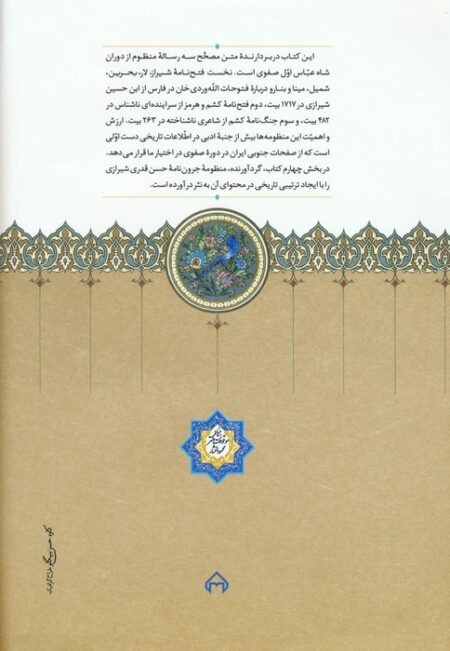 این کتاب دربردارندهٔ متن مصحَّح سه رسالهٔ منظوم از دوران
شاه عبّاس اوّل صفوی است. نخست فتح‌نامهٔ شیراز، لار، بحرین،
شمیل، مینا و بنارو دربارهٔ فتوحات اللّه‌وردی خان در فارس از ابن حسین
شیرازی در ۱۷۱۷ بیت، دوم فتح‌نامهٔ کشم و هرمز از سراینده‌ای ناشناس در
۴۸۲ بیت، و سوم جنگ‌نامهٔ کشم از شاعری ناشناخته در ۲۶۳ بیت. ارزش
و اهمیّت این منظومه‌ها بیش از جنبهٔ ادبی در اطّلاعات تاریخی دست اوّلی
است که از صفحات جنوبی ایران در دورهٔ صفوی در اختیار ما قرار می‌دهد.
در بخش چهارم کتاب، گردآورنده، منظومهٔ جرون‌نامهٔ حسن قدری شیرازی
را با ایجاد ترتیبی تاریخی در محتوای آن به نثر درآورده است.